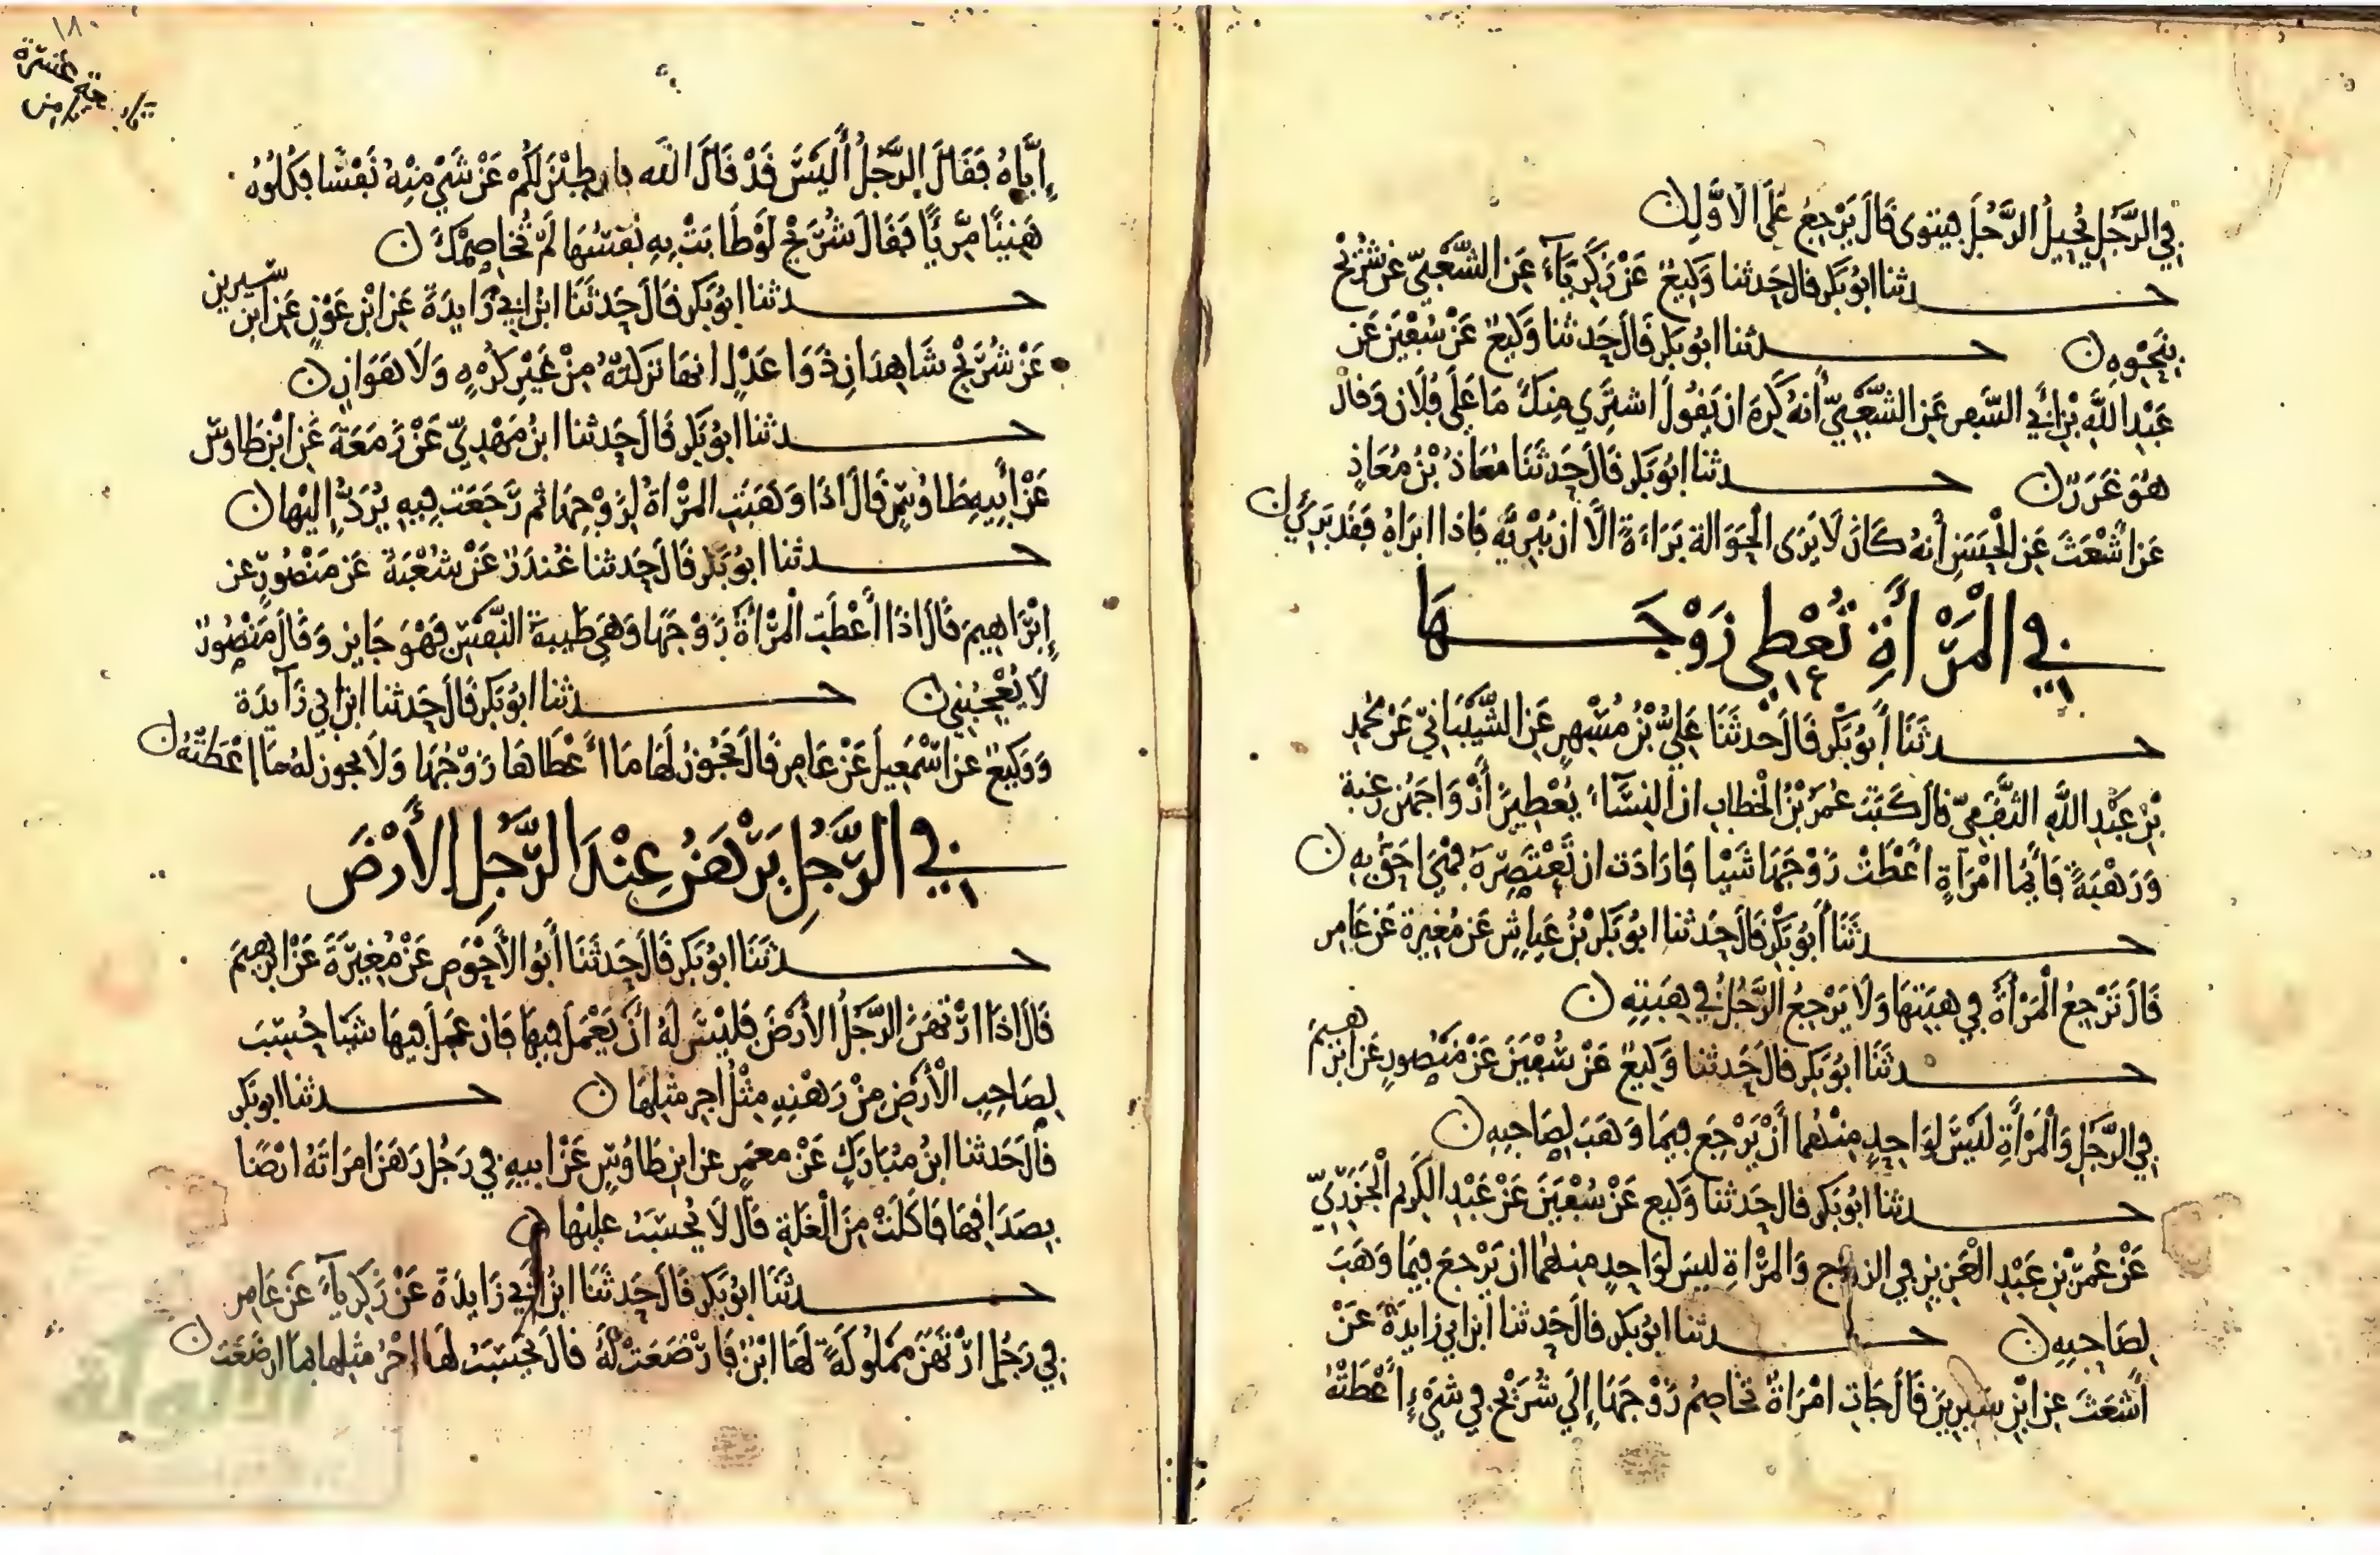 في الرجل يحيل الرجل فيتوى قال يرجع على الاول ن
حدثنا ابو بكر قال حدثنا وكيع عن زكرياء عن الشعبي عن شريح
بنحوه ن حدثنا ابو بكر قال حدثنا وكيع عن سفين عن
عبد الله بن أبي السفر عن الشعبي أنه كره ان يقول اشتري منك ما على فلان وقال
هو غرر ن حدثنا ابو بكر قال حدثنا معاذ بن معاذ
عن اشعث عن الحسن أنه كان لا يرى الحوالة براءة الا ان يبريه فاذا ابراه فقد برئ ن
في المرأة تعطي زوجها
١٤
حدثنا أبو بكر قال حدثنا علي بن مسهر عن الشيباني عن محمد
بن عبيد الله الثقفي قال كتب عمر بن الخطاب ان النساء يعطين أزواجهن رغبة
ورهبة فأيما امرأة اعطت زوجها شيا فارادت ان تعتصره فهي احق به ن
حدثنا أبو بكر قال حدثنا ابو بكر بن عياش عن مغيرة عن عامر
قال ترجع المرأة في هبتها ولا يرجع الرجل في هبته ن
حدثنا ابو بكر قال حدثنا وكيع عن سفين عن منصور عن ابرهيم
في الرجل والمرأة ليس لواحد منهما أن يرجع فيما وهب لصاحبه ن
حدثنا ابو بكر قال حدثنا وكيع عن سفين عن عبد الكريم الجزري
عن عمر بن عبد العزيز في الزوج والمراة ليس لواحد منهما ان يرجع فيما وهب
لصاحبه ن حدثنا ابو بكر قال حدثنا ابن ابي زايدة عن
أشعث عن ابن سيرين قال جات امراة تخاصم زوجها إلى شريح في شيء أعطته
١٨٠
إياه فقال الرجل أليس قد قال الله فان طبن لكم عن شي منه نفسا فكلوه
هنيئا مريا فقال شريح لو طابت به نفسها لم تخاصمك ن
حدثنا ابو بكر قال حدثنا ابن ابي زايدة عن ابن عون عن ابن سيرين
عن شريح شاهدان ذوا عدل انها تركته من غير كره ولا هوان ن
حدثنا ابو بكر قال حدثنا ابن مهدي عن زمعة عن ابن طاوس
عن أبيه طاوس قال اذا وهبت المراة لزوجها ثم رجعت فيه يرد إليها ن
حدثنا ابو بكر قال حدثنا غندر عن شعبة عن منصور عن
إبراهيم قال اذا أعطت المرأة زوجها وهي طيبة النفس فهو جايز وقال منصور
لا يعجبني ن حدثنا ابو بكر قال حدثنا ابن ابي زآيدة
ووكيع عن اسمعيل عن عامر قال يجوز لها ما أعطاها زوجها ولا يجوز له ما اعطته ن
في الرجل يرهن عند الرجل الأرض
حدثنا ابو بكر قال حدثنا أبو الأحوص عن مغيرة عن ابرهيم
قال اذا ارتهن الرجل الأرض فليس له أن يعمل فيها فان عمل فيها شيا حسب
لصاحب الأرض من رهنه مثل اجر مثلها ن حدثنا ابو بكر
قال حدثنا ابن مبارك عن معمر عن ابن طاوس عن ابيه في رجل رهن امراته ارضا
بصداقها فاكلت من الغلة قال لا يحسب عليها ن
حدثنا ابو بكر قال حدثنا ابن أبي زايدة عن زكرياء عن عامر
في رجل ارتهن مملوكة لها ابن فارضعت له قال يحسب لها اجر مثلها بما ارضعت ن
الألوكة